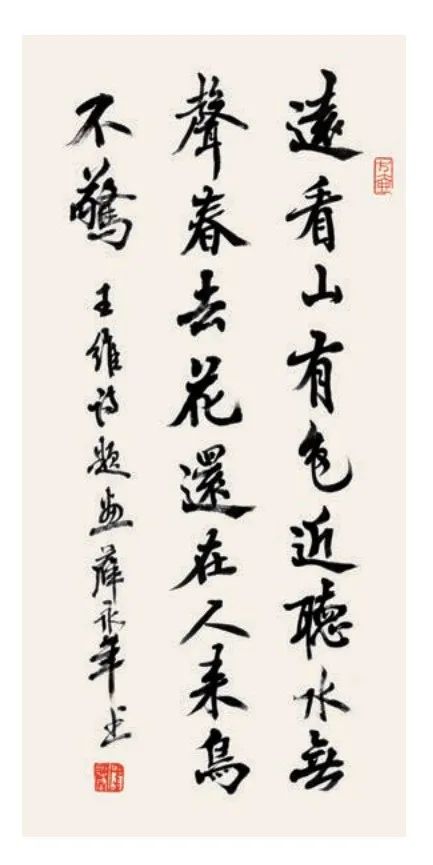 遠看山有色近聽水無
聲春去花還在人来鳥
不驚
王維詩題畫薛永年書